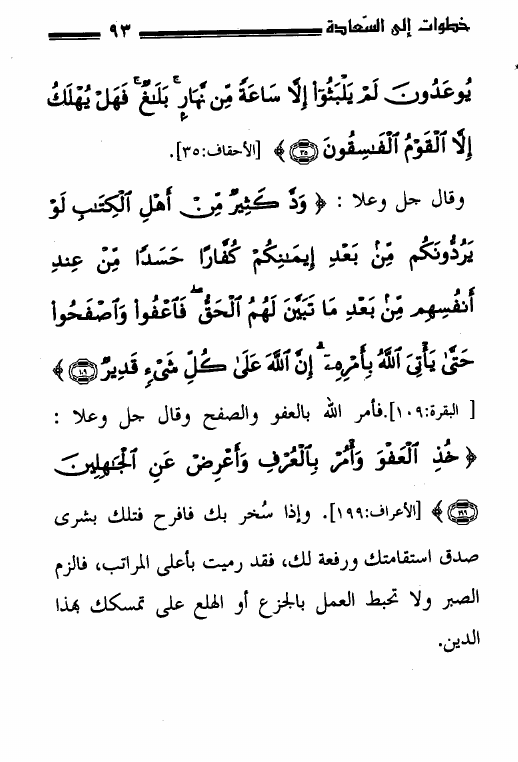 خطوات إلى السعادة ٩٣
يُوعَدُونَ لَمْ يَلْبَثُوٓا۟ إِلَّا سَاعَةً مِّن نَّهَارٍۭ ۚ بَلَـٰغٌ ۚ فَهَلْ يُهْلَكُ
إِلَّا ٱلْقَوْمُ ٱلْفَـٰسِقُونَ ﴿٣٥﴾ ﴾ [الأحقاف:٣٥].
وقال جل وعلا : ﴿ وَدَّ كَثِيرٌ مِّنْ أَهْلِ ٱلْكِتَـٰبِ لَوْ
يَرُدُّونَكُم مِّنۢ بَعْدِ إِيمَـٰنِكُمْ كُفَّارًا حَسَدًا مِّنْ عِندِ
أَنفُسِهِم مِّنۢ بَعْدِ مَا تَبَيَّنَ لَهُمُ ٱلْحَقُّ ۖ فَٱعْفُوا۟ وَٱصْفَحُوا۟
حَتَّىٰ يَأْتِىَ ٱللَّهُ بِأَمْرِهِۦٓ ۗ إِنَّ ٱللَّهَ عَلَىٰ كُلِّ شَىْءٍ قَدِيرٌ ﴿١٠٩﴾ ﴾
[ البقرة:١٠٩].فأمر الله بالعفو والصفح وقال جل وعلا :
﴿ خُذِ ٱلْعَفْوَ وَأْمُرْ بِٱلْعُرْفِ وَأَعْرِضْ عَنِ ٱلْجَـٰهِلِينَ
﴿١٩٩﴾ ﴾ [الأعراف:١٩٩]. وإذا سُخر بك فافرح فتلك بشرى
صدق استقامتك ورفعة لك، فقد رميت بأعلى المراتب، فالزم
الصبر ولا تحبط العمل بالجزع أو الهلع على تمسكك بهذا
الدين.